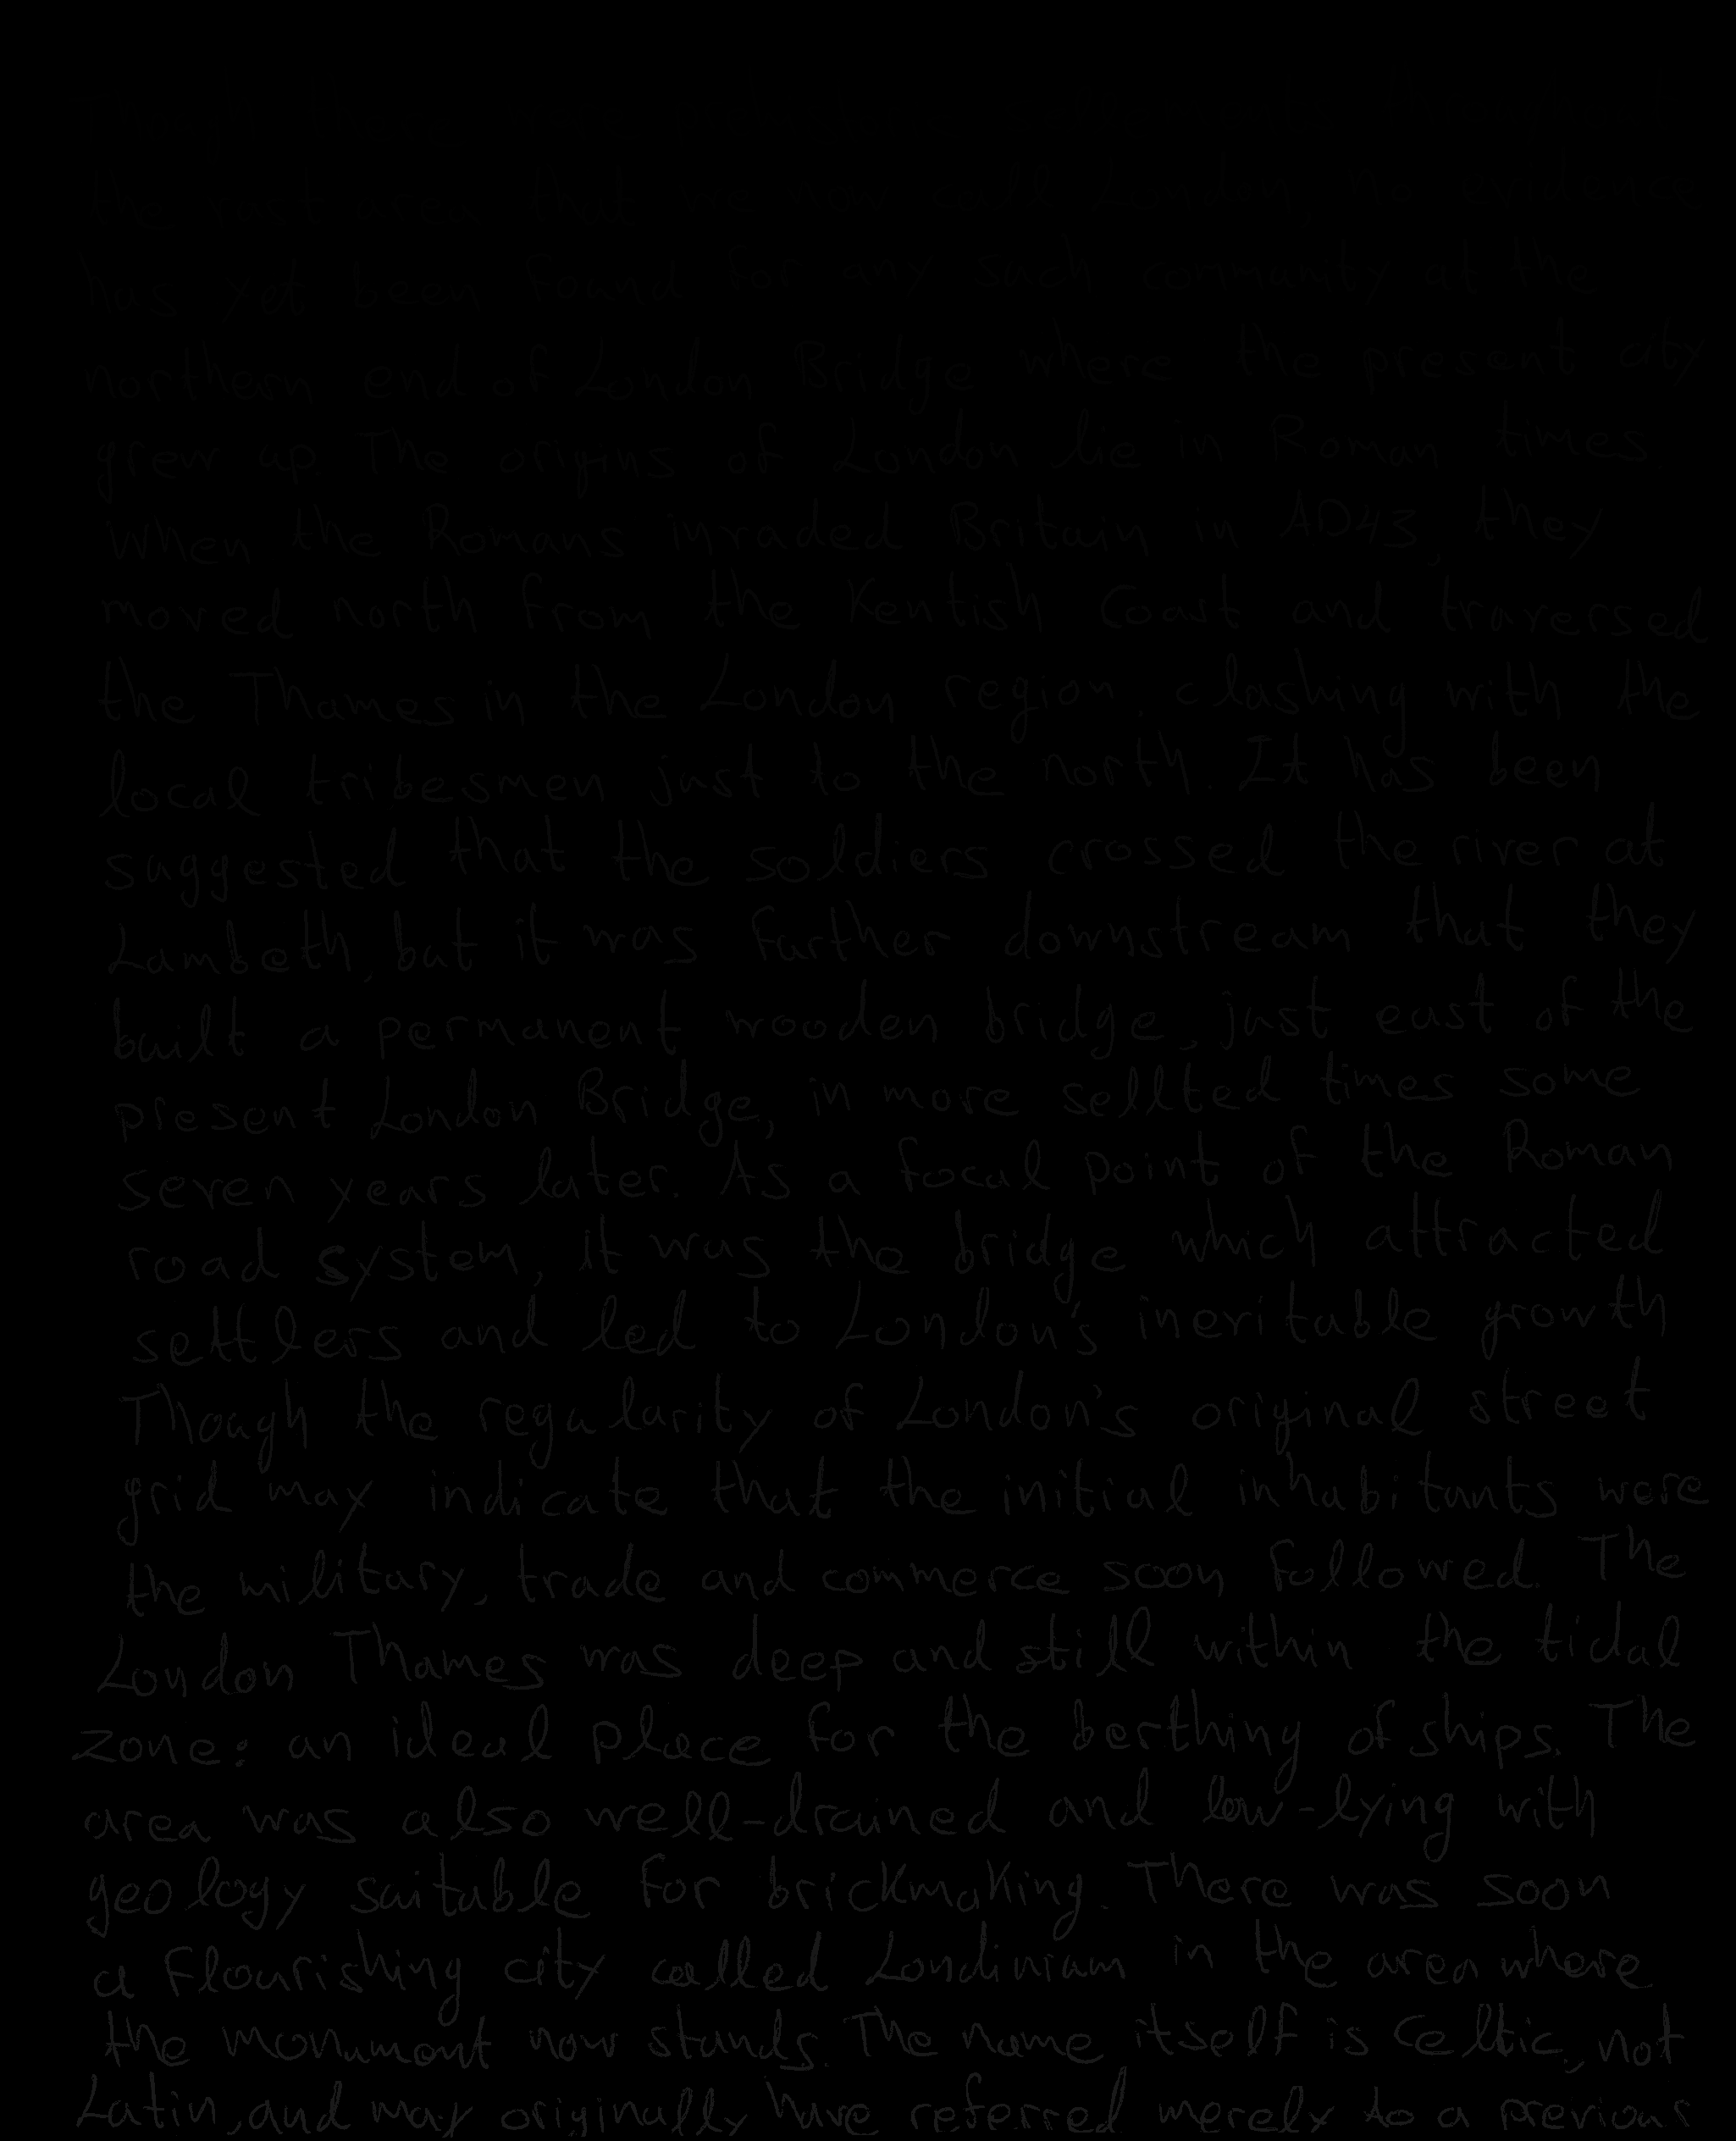 the vast area that we now call London, no evidence
has yet been found for any such community at the
northern end of London Bridge where the present city
grew up. The origins of London lie in Roman times.
When the Romans invaded Britain in AD43, they
moved north from the Kentish Coast and traversed
the Thames in the London region, clashing with the
local tribesmen just to the north. It has been
suggested that the soldiers crossed the river at
Lambeth, but it was further downstream that they
built a permanent wooden bridge, just east of the
present London Bridge, in more sellted times some
seven years later. As a focal point of the Roman
road system, it was the bridge which attracted
settlers and led to London's inevitable growth
Though the regularity of London's original street
grid may indicate that the initial inhabitants were
the military, trade and commerce soon followed. The
London Thames was deep and still within the tidal
zone: an ideal place for the berthing of ships. The
area was also well-drained and low-lying with
geology suitable for brickmaking. There was soon
a flourishing city called Londinium in the area where
the monument now stands. The name itself is Celtic, not
Latin, and may originally have referred merely to a previous